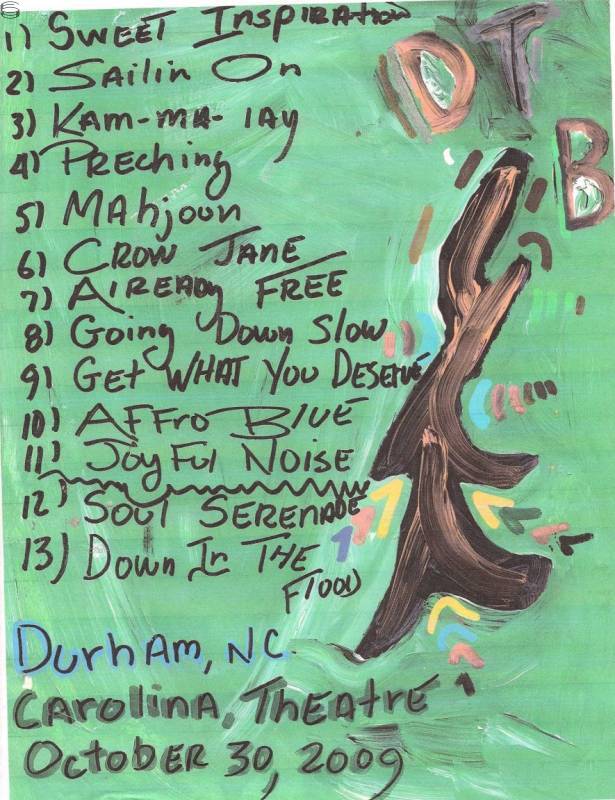 1) Sweet Inspiration
2) Sailin On
3) Kam-ma-lay
4) Preching
5) Mahjoun
6) Crow Jane
7) Already Free
8) Going Down Slow
9) Get What You Deserve
10) Affro Blue
11) Joyful Noise
12) Soul Serenade
13) Down In The
Flood
DTB
Durham, NC.
Carolina, Theatre
October 30, 2009